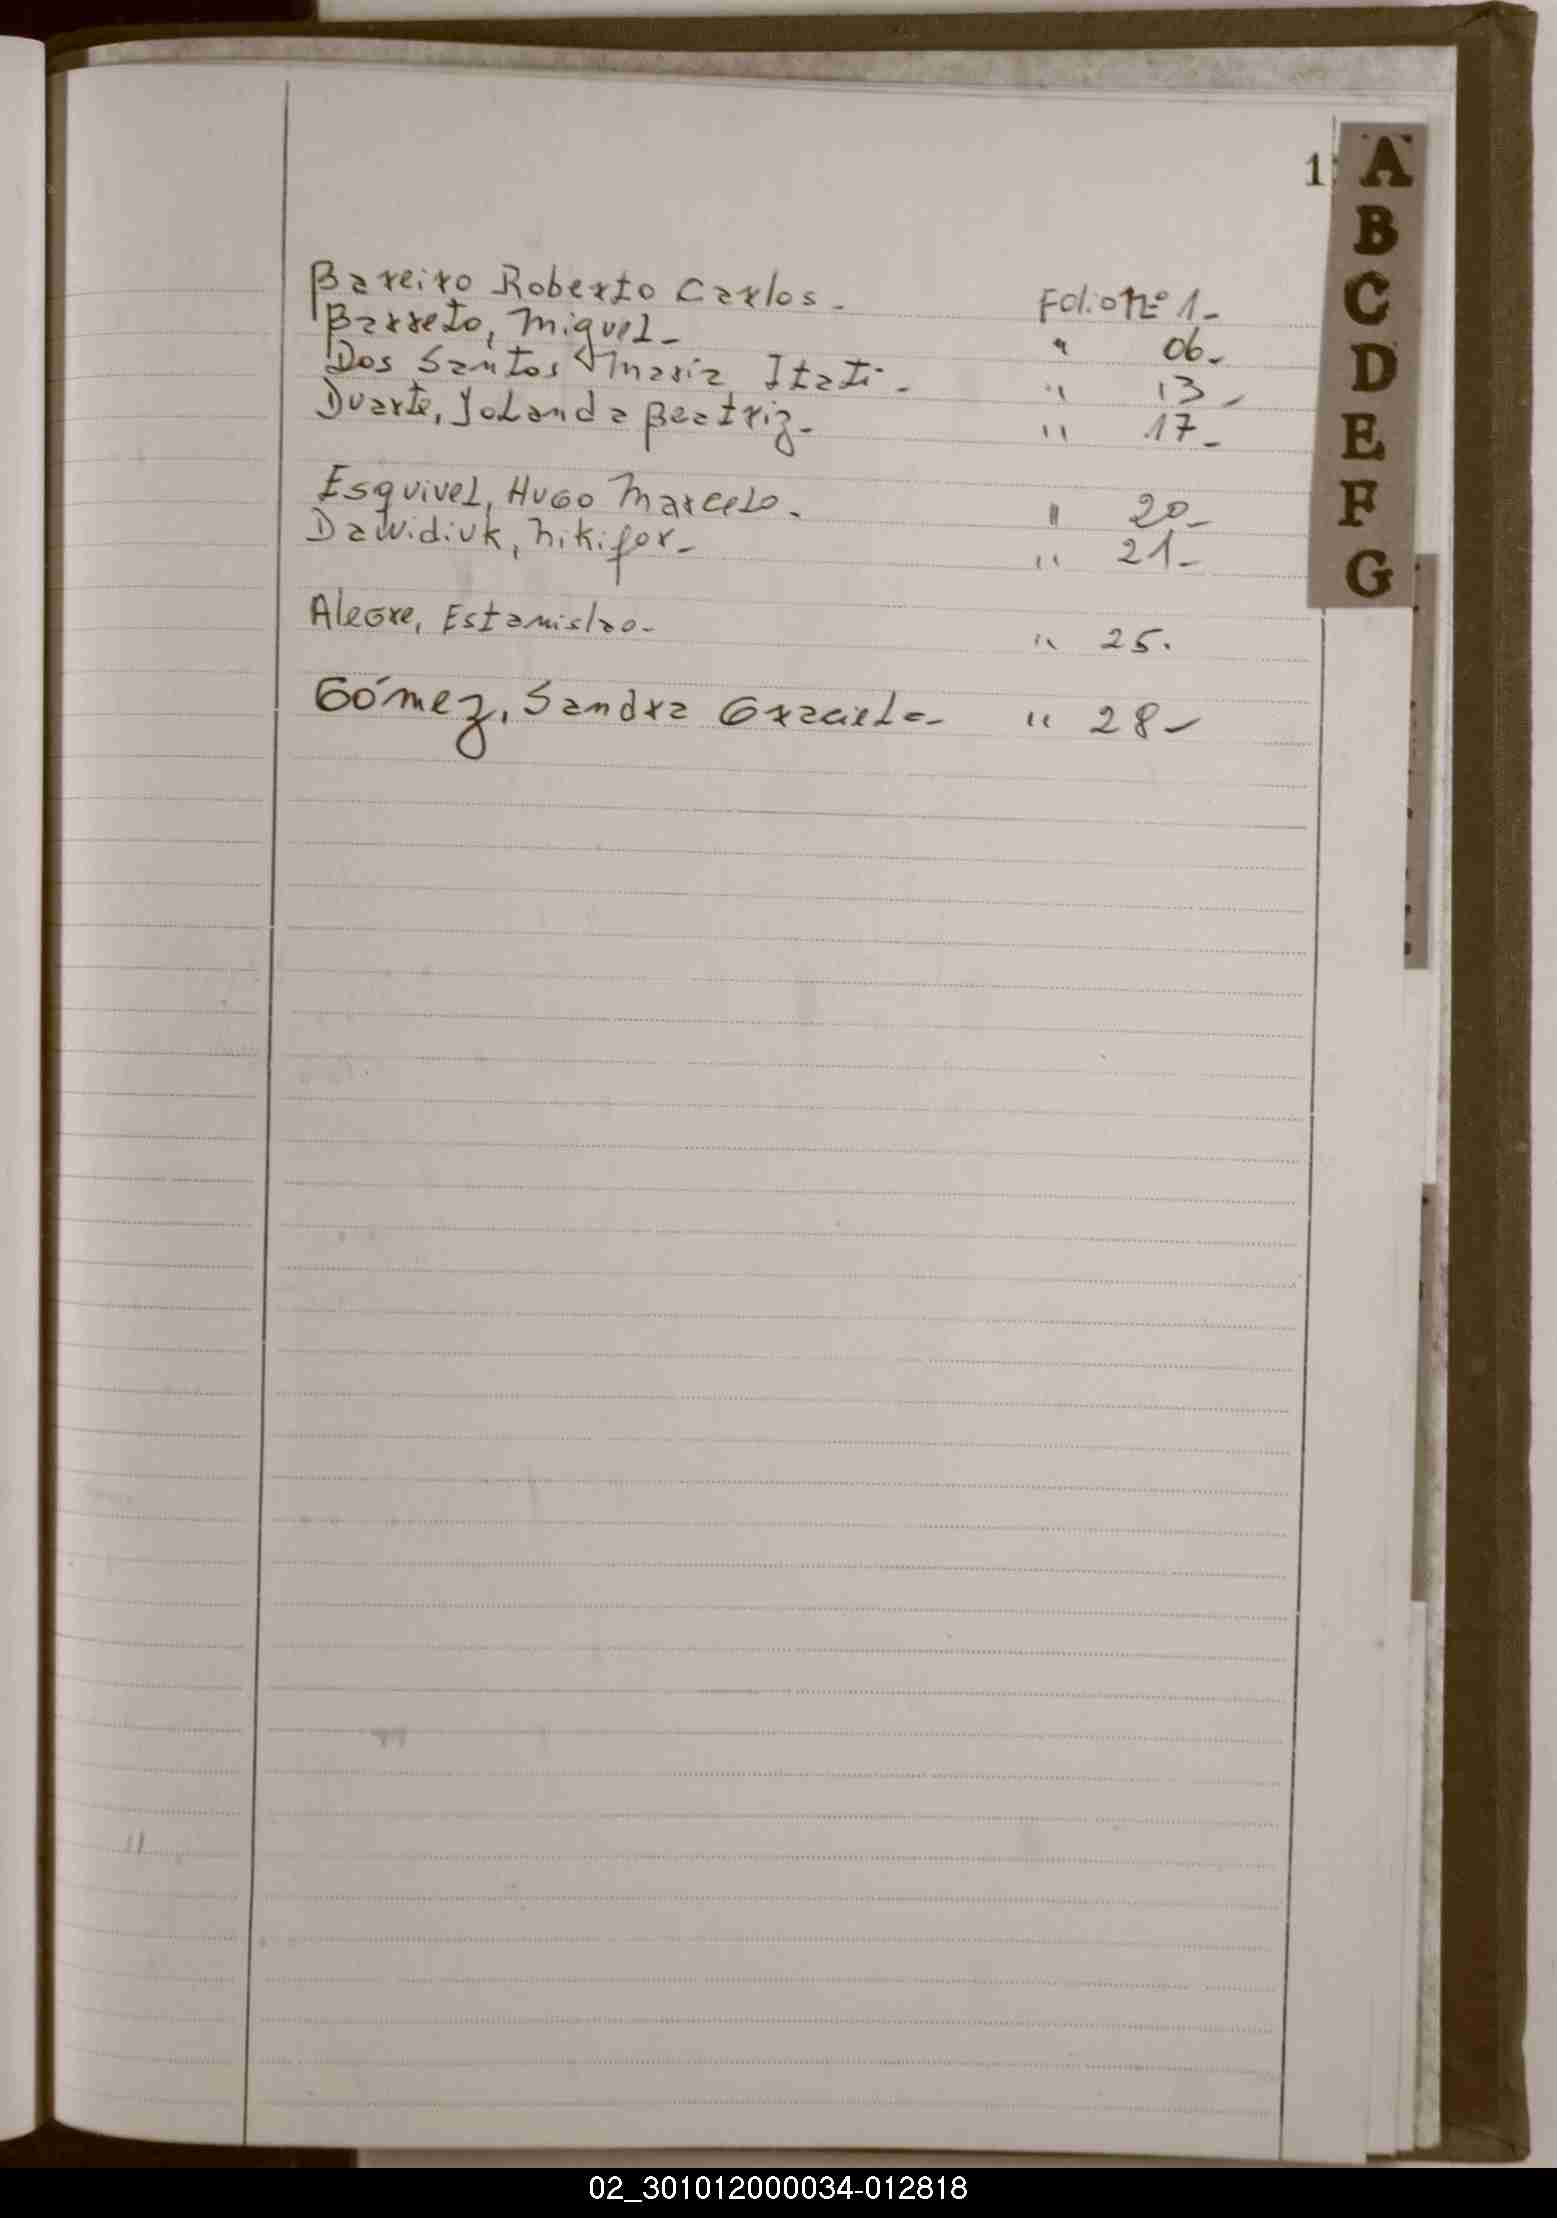 1
A
B
C
D
E
F
G
Bareiro Roberto Carlos. Folio Nº 1-
Barreto, Miguel- " 06-
Dos Santos Maria Itati- " 13-
Duarte, Yolanda Beatriz- " 17-
Esquivel, Hugo Marcelo. " 20-
Dawidiuk, Nikifor- " 21-
Alegre, Estanislao- " 25.
Gómez, Sandra Graciela- " 28-
02_301012000034-012818